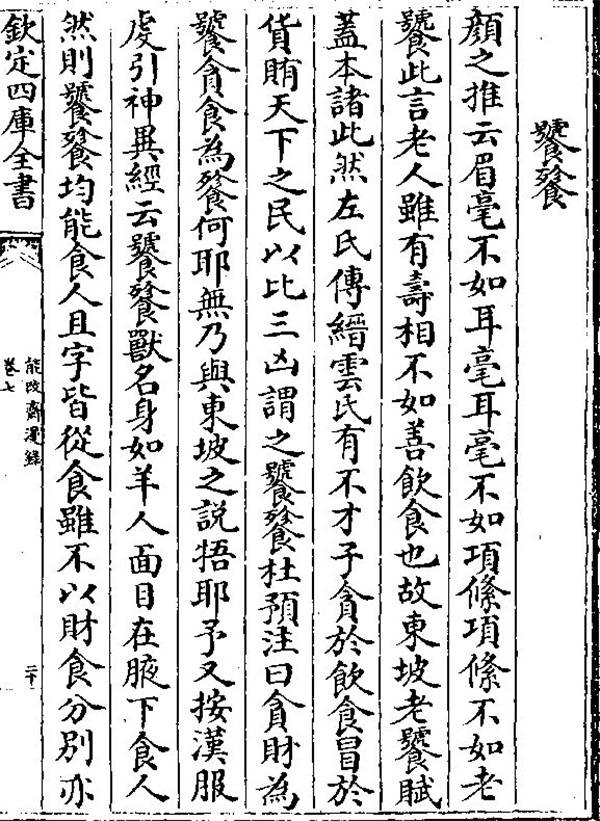 饕餮
顔之推云眉毫不如耳毫耳毫不如項絛項絛不如老
饕此言老人雖有壽相不如善飲食也故東坡老饕賦
蓋本諸此然左氏傳縉雲氏有不才子貪於飲食冒於
貨賄天下之民以比三凶謂之饕餮杜預注曰貪財為
饕貪食為餮何耶無乃與東坡之說牾耶予又按漢服
虔引神異經云饕餮獸名身如羊人面目在腋下食人
然則饕餮均能食人且字皆從食雖不以財食分別亦
欽定四庫全書
能改齋漫錄
卷七
二十